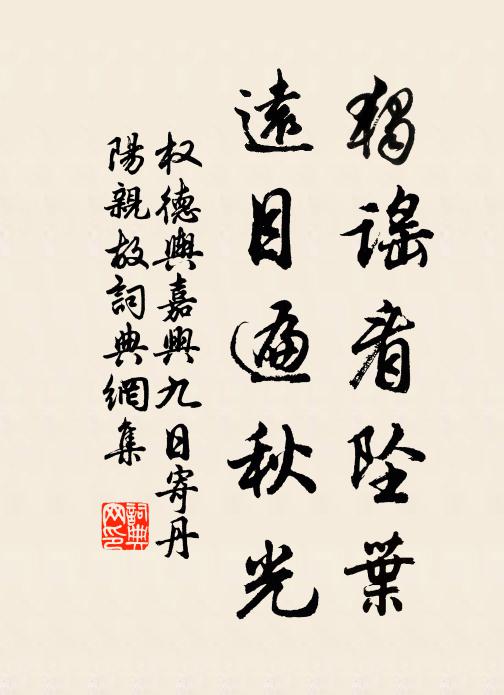 獨謠看墜葉
遠目遍秋光
权德輿嘉興九日寄丹
陽親故詞典網集
詞典
网印